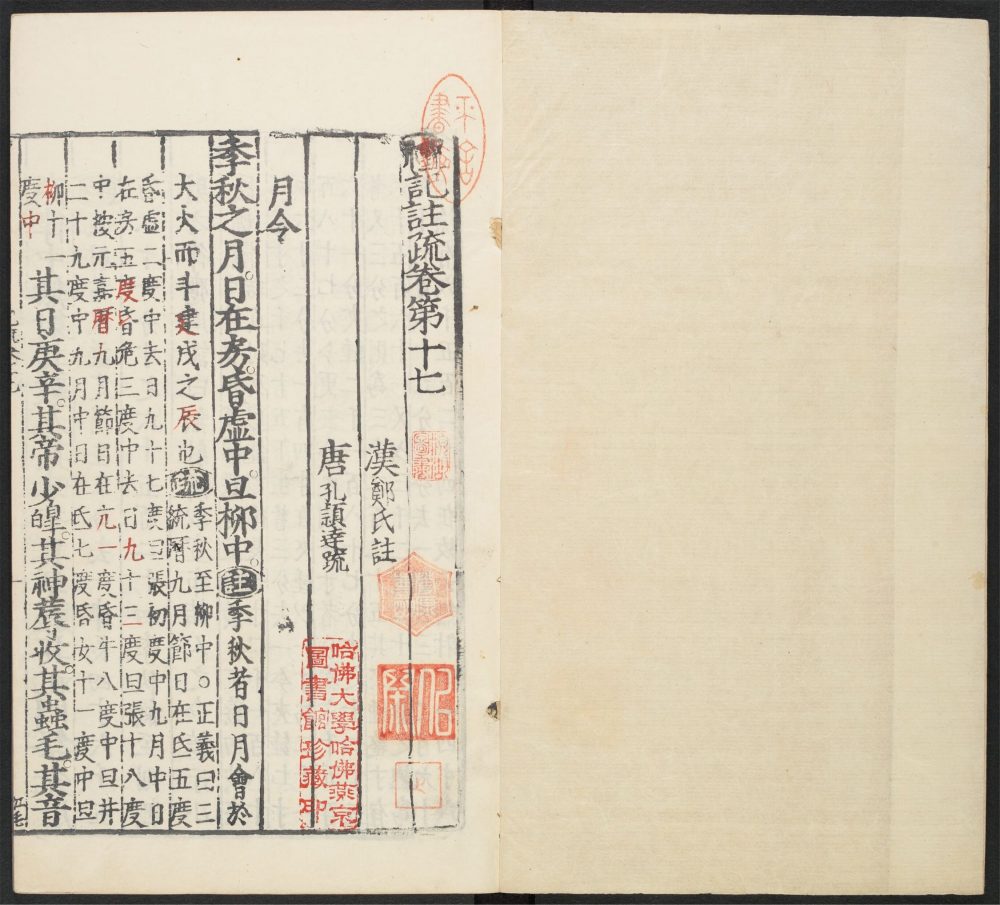 禮記註疏卷第十七
漢鄭氏註
唐孔頴達疏
月令
季秋之月日在房昏虛中旦柳中註季秋者日月會於
大火而斗建戌之辰也疏季秋至柳中○正義曰三
統曆九月節日在氐五度
昏虛二度中去日九十七度旦張初度中九月中日
在房五度昏危三度中去日九十三度旦張十八度
中按元嘉曆九月節日在亢一度昏牛八度中旦井
二十九度中九月中日在氐七度昏女十一度中旦
柳十一度中
其日庚辛其帝少皞其神蓐收其蟲毛其音
哈佛大學哈佛燕京
圖書館珍藏印